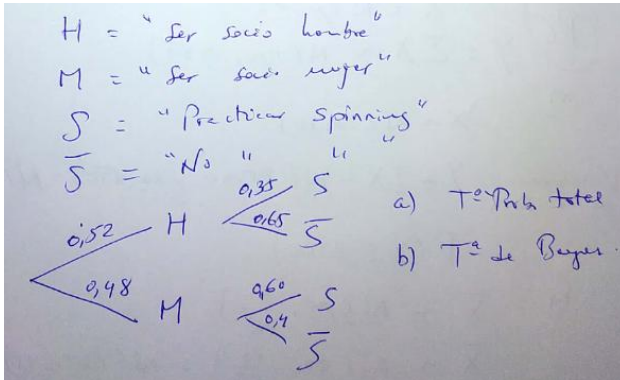 H = "Ser socio hombre"
M = "Ser socio mujer"
S = "Practicar spinning"
S̅ = "No " " "
0,52 H 0,35 S
0,65 S̅
0,48 M 0,60 S
0,4 S̅
a) Tª Prob total
b) Tª de Bayes.